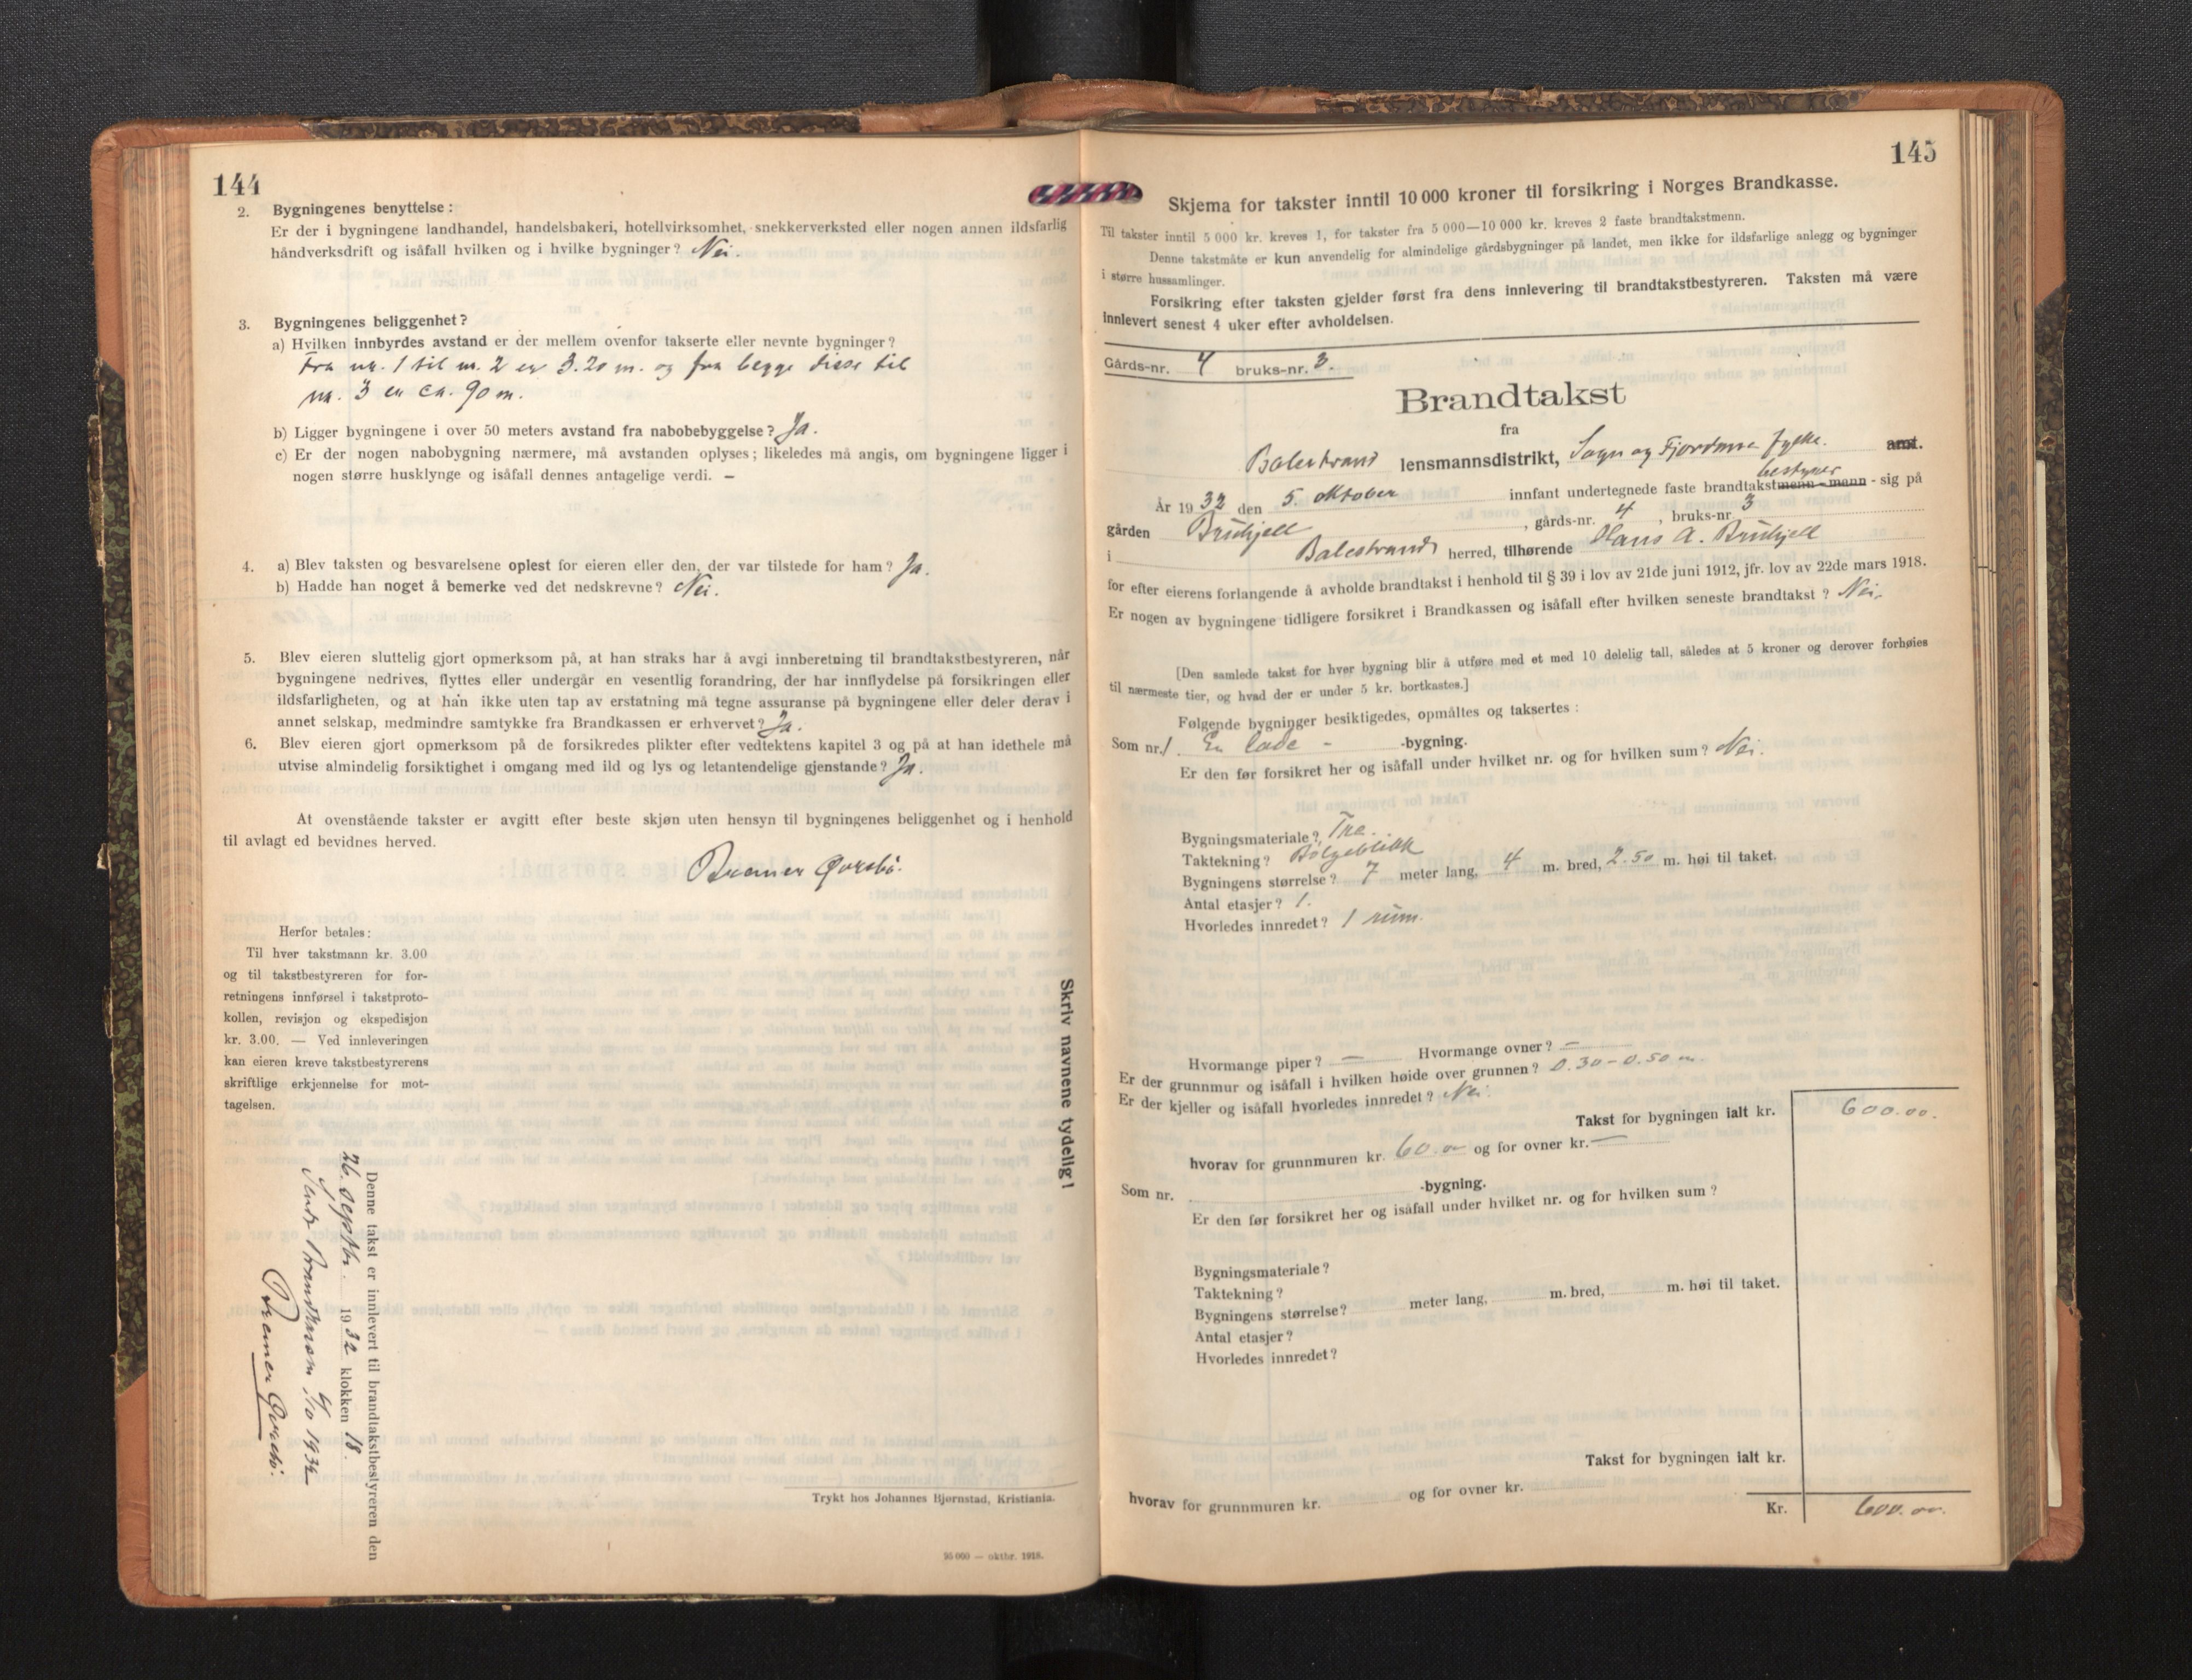 144
2. Bygningenes benyttelse:
Er der i bygningene landhandel, handelsbakeri, hotellvirksomhet, snekkerverksted eller nogen annen ildsfarlig
håndverksdrift og isåfall hvilken og i hvilke bygninger? Nei.
3. Bygningenes beliggenhet?
a) Hvilken innbyrdes avstand er der mellem ovenfor takserte eller nevnte bygninger?
Fra nr. 1 til nr. 2 er 3.20 m. og fra begge disse til
nr. 3 er ca. 90 m.
b) Ligger bygningene i over 50 meters avstand fra nabobebyggelse? Ja.
c) Er der nogen nabobygning nærmere, må avstanden oplyses; likeledes må angis, om bygningene ligger i
nogen større husklynge og isåfall dennes antagelige verdi. —
4. a) Blev taksten og besvarelsene oplest for eieren eller den, der var tilstede for ham? Ja.
b) Hadde han noget å bemerke ved det nedskrevne? Nei.
5. Blev eieren sluttelig gjort opmerksom på, at han straks har å avgi innberetning til brandtakstbestyreren, når
bygningene nedrives, flyttes eller undergår en vesentlig forandring, der har innflydelse på forsikringen eller
ildsfarligheten, og at han ikke uten tap av erstatning må tegne assuranse på bygningene eller deler derav i
annet selskap, medmindre samtykke fra Brandkassen er erhvervet? Ja.
6. Blev eieren gjort opmerksom på de forsikredes plikter efter vedtektens kapitel 3 og på at han idethele må
utvise almindelig forsiktighet i omgang med ild og lys og letantendelige gjenstande? Ja.
At ovenstående takster er avgitt efter beste skjøn uten hensyn til bygningenes beliggenhet og i henhold
til avlagt ed bevidnes herved.
Herfor betales:
Til hver takstmann kr. 3.00
og til takstbestyreren for for-
retningens innførsel i takstproto-
kollen, revisjon og ekspedisjon
kr. 3.00. — Ved innleveringen
kan eieren kreve takstbestyrerens
skriftlige erkjennelse for mot-
tagelsen.
Skriv navnene tydelig!
Denne takst er innlevert til brandtakstbestyreren den
26. septbr. 1932 klokken 18.
Trykt hos Johannes Bjørnstad, Kristiania.
oktbr. 1918.
145
Skjema for takster inntil 10 000 kroner til forsikring i Norges Brandkasse.
Til takster inntil 5 000 kr. kreves 1, for takster fra 5 000—10 000 kr. kreves 2 faste brandtakstmenn.
Denne takstmåte er kun anvendelig for almindelige gårdsbygninger på landet, men ikke for ildsfarlige anlegg og bygninger
i større hussamlinger.
Forsikring efter taksten gjelder først fra dens innlevering til brandtakstbestyreren. Taksten må være
innlevert senest 4 uker efter avholdelsen.
Gårds-nr. 4 bruks-nr. 3.
Brandtakst
fra
Balestrand lensmannsdistrikt, Sogn og Fjordane fylke. amt.
bestyrer
År 1932 den 5. oktober innfant undertegnede faste brandtakstmenn - mann - sig på
gården Brühjell, gårds-nr. 4, bruks-nr 3
i Balestrand herred, tilhørende Hans A. Brühjell
for efter eierens forlangende å avholde brandtakst i henhold til § 39 i lov av 21de juni 1912, jfr. lov av 22de mars 1918.
Er nogen av bygningene tidligere forsikret i Brandkassen og isåfall efter hvilken seneste brandtakst? Nei.
[Den samlede takst for hver bygning blir å utføre med et med 10 delelig tall, således at 5 kroner og derover forhøies
til nærmeste tier, og hvad der er under 5 kr. bortkastes.]
Følgende bygninger besiktigedes, opmåltes og taksertes:
Som nr. 1. En lade - -bygning.
Er den før forsikret her og isåfall under hvilket nr. og for hvilken sum? Nei.
Bygningsmateriale? Tre.
Taktekning? Bølgeblikk
Bygningens størrelse? 7 meter lang, 4 m. bred, 2.50 m. høi til taket.
Antal etasjer? 1.
Hvorledes innredet? 1 rüm.
Hvormange piper? — Hvormange ovner? —
Er der grunnmur og isåfall i hvilken høide over grunnen? 0.30 - 0.50 m
Er der kjeller og isåfall hvorledes innredet? Nei.
Takst for bygningen ialt kr. 600.00.
hvorav for grunnmuren kr. 60.00 og for ovner kr. —
Som nr. -bygning.
Er den før forsikret her og isåfall under hvilket nr. og for hvilken sum?
Bygningsmateriale?
Taktekning?
Bygningens størrelse? meter lang, m. bred, m. høi til taket.
Antal etasjer?
Hvorledes innredet?
Takst for bygningen ialt kr.
hvorav for grunnmuren kr. og for ovner kr.
Kr. 600.00.